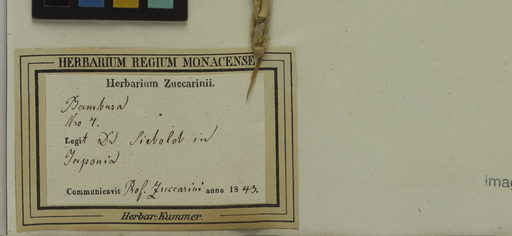 HERBARIUM REGIUM MONACENSE
Herbarium Zuccarinii.
Bambusa
Nro 7.
Legit Dr Siebold in
Japonia
Communicavit Prof. Zuccarini anno 1843.
Herbar. Kummer.
imag